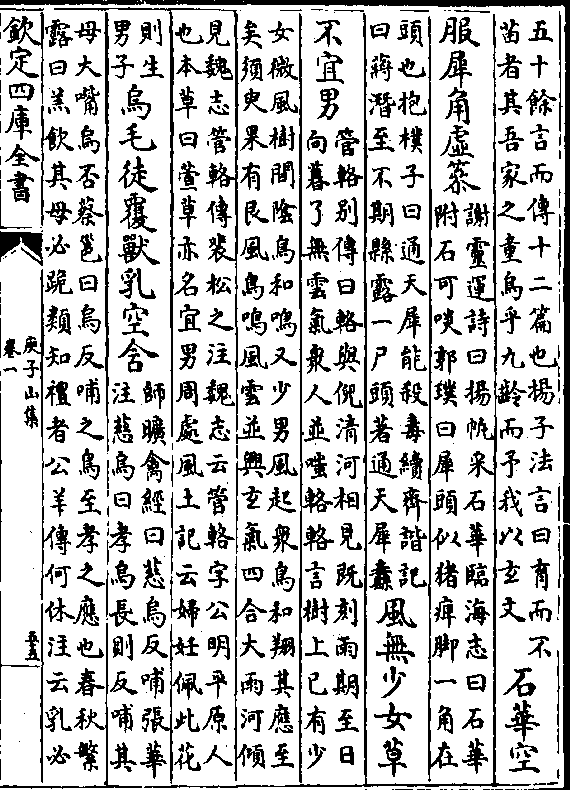 五十餘言而傳十二篇也揚子法言曰育而不
苗者其吾家之童烏乎九齡而予我以玄文
石華空
服犀角虛篸
謝靈運詩曰揚帆采石華臨海志曰石華
附石可啖郭璞曰犀頭似猪痺脚一角在
頭也抱樸子曰通天犀能殺毒續齊諧記
曰蔣潛至不期縣露一尸頭著通天犀纛
風無少女草
不宜男
管輅別傳曰輅與倪清河相見既刻雨期至日
向暮了無雲氣衆人並嗤輅輅言樹上已有少
女微風樹間陰鳥和鳴又少男風起衆鳥和翔其應至
矣須臾果有艮風鳥鳴風雲並興玄氣四合大雨河傾
見魏志管輅傳裴松之注魏志云管輅字公明平原人
也本草曰萱草亦名宜男周處風土記云婦妊佩此花
則生
男子
烏毛徒覆獸乳空含
師曠禽經曰慈烏反哺張華
注慈烏曰孝烏長則反哺其
母大嘴烏否蔡邕曰烏反哺之鳥至孝之應也春秋繁
露曰羔飲其母必跪類知禮者公羊傳何休注云乳必
欽定四庫全書
庾子山集
卷一